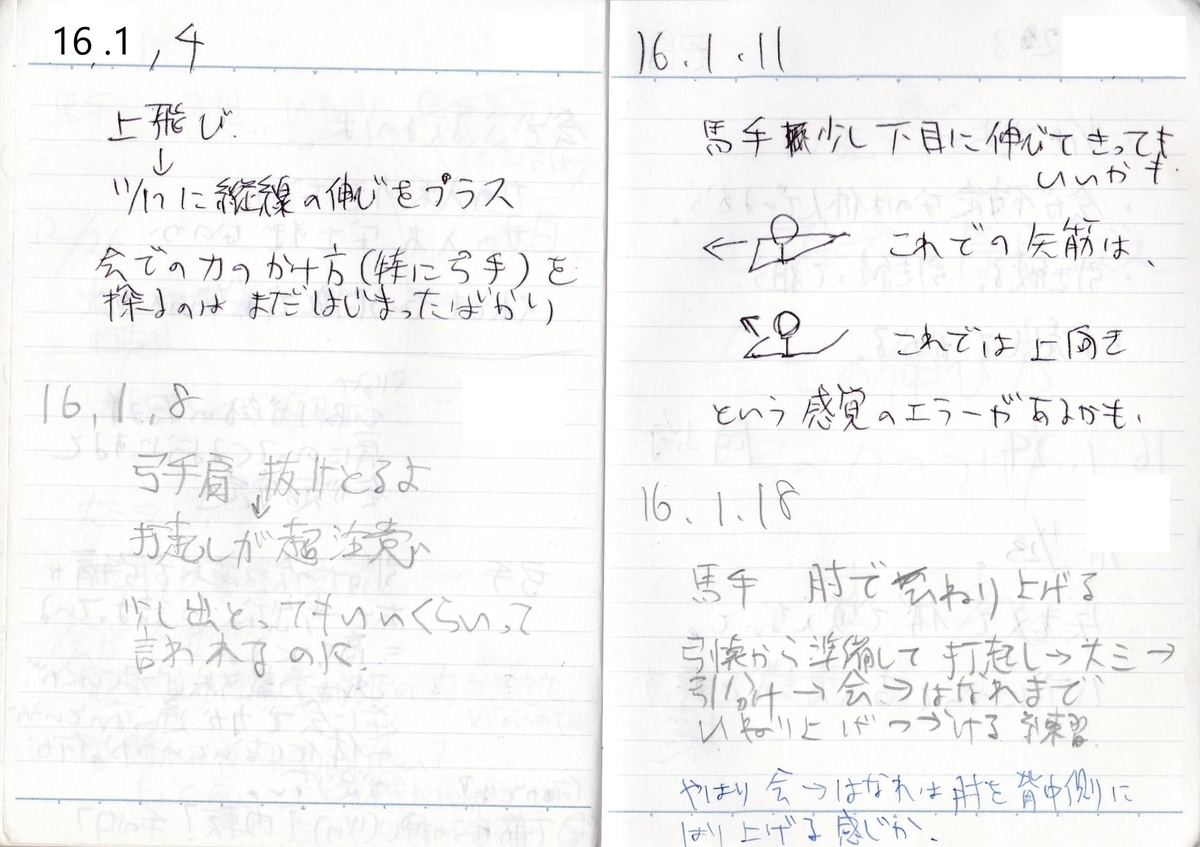 16.1.4
上飛び.
↓
12/17に縦線の伸びをプラス
会での力のかけ方(特に弓手)を
探るのは まだはじまったばかり
16.1.8
弓手肩 抜けとるよ
↓
打起しが超注意
少し出とってもいいくらいって
言われるのに.
16.1.11
馬手 少し下目に伸びてきっても
いいかも.
これでの矢筋は、
これでは上向き
という感覚のエラーがあるかも.
16.1.18
馬手 肘でひねり上げる
引懐から準備して 打起し→大三→
引分け→会→はなれまで
ひねり上げつづける練習
やはり 会→はなれは肘を背中側に
はり上げる感じか.